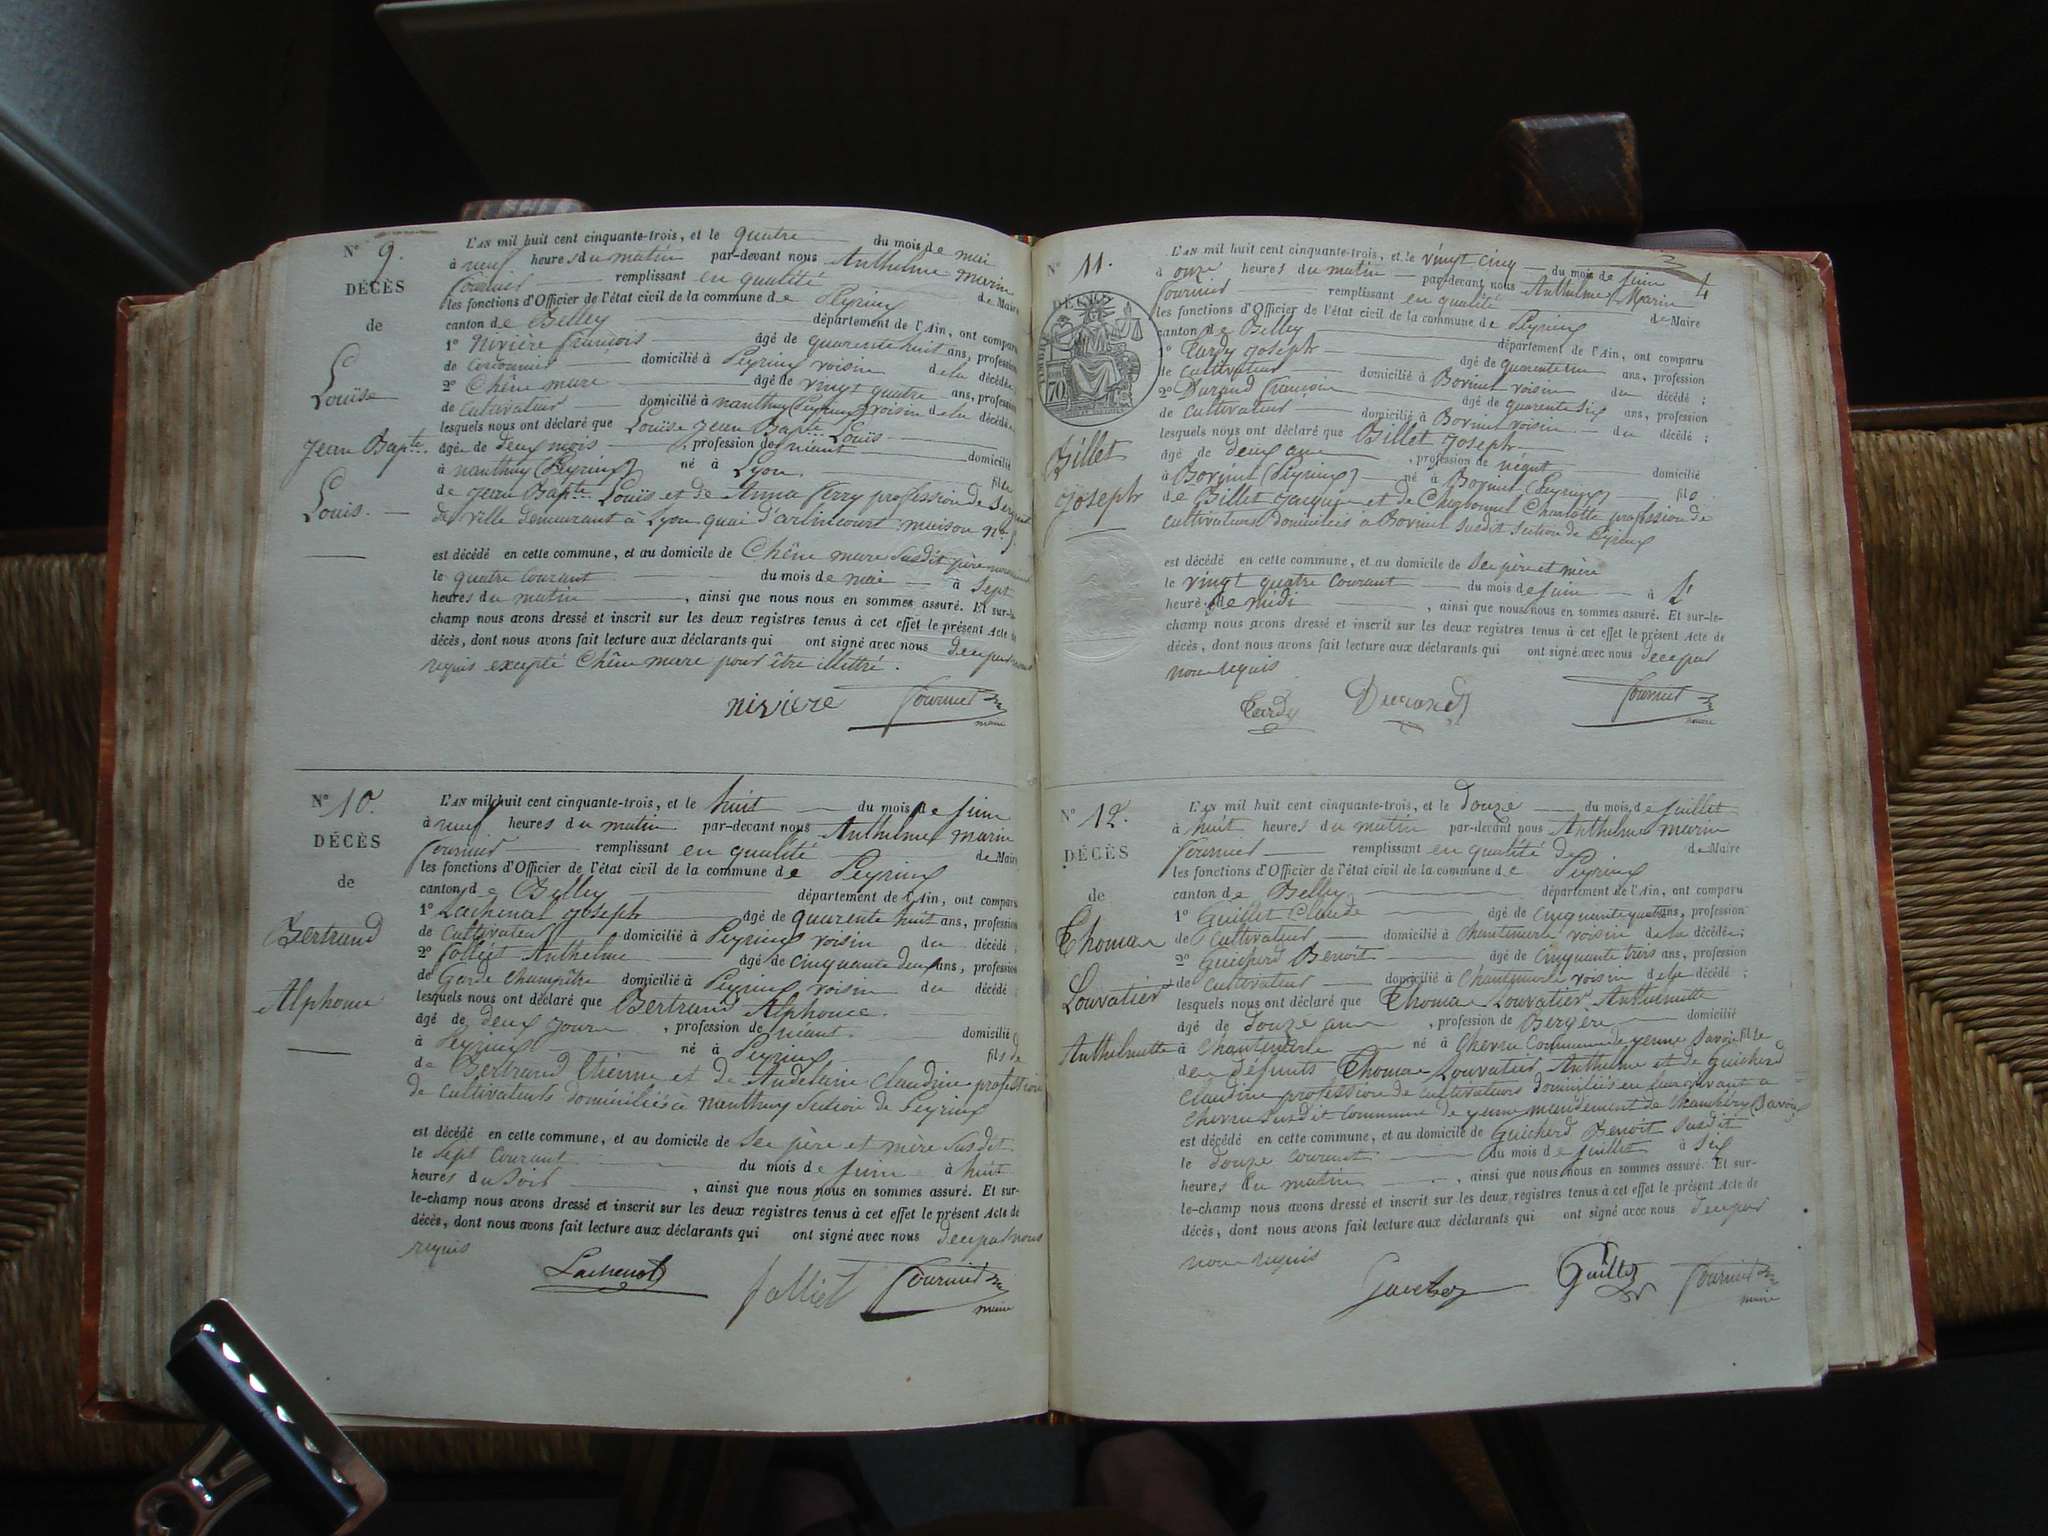 N° 9.
DÉCÈS
de
Louise
Jean Bapte.
Louis.
L'AN mil huit cent cinquante-trois, et le quatre du mois de mai
à neuf heures du matin par-devant nous Anthelme Marin
Fournier remplissant en qualité de Maire
les fonctions d'Officier de l'état civil de la commune de Peyrieux
canton de Belley département de l'Ain, ont comparu
1° Nivière François âgé de quarente huit ans, profession
de cordonnier domicilié à Peyrieux voisin de la décédée
2° Chêne marc âgé de vingt quatre ans, profession
de Cultivateur domicilié à nanthuy (Peyrieux) voisin de la décédée
lesquels nous ont déclaré que Louise Jean Bapte Louïs
âgé de deux mois, profession de néant domicilié
à nanthuy (Peyrieux) né à Lyon. fils
de Jean Bapte Louïs et de Anna Ferry profession de Sergent
de ville demeurant à Lyon quai d'arlincourt maison No
est décédé en cette commune, et au domicile de Chêne marc Susdit père nourricier
le quatre Courant du mois de mai à Sept
heures du matin, ainsi que nous nous en sommes assuré. Et sur-le-
champ nous avons dressé et inscrit sur les deux registres tenus à cet effet le présent Acte de
décès, dont nous avons fait lecture aux déclarants qui ont signé avec nous de ce par nous
requis excepté Chêne marc pour être illettré.
nivière Fournier
maire
N° 10.
DÉCÈS
de
Bertrand
Alphonse
L'AN mil huit cent cinquante-trois, et le huit du mois de Juin
à neuf heures du matin par-devant nous Anthelme Marin
Fournier remplissant en qualité de Maire
les fonctions d'Officier de l'état civil de la commune de Peyrieux
canton de Belley département de l'Ain, ont comparu
1° Lachenat Joseph âgé de quarente huit ans, profession
de Cultivateur domicilié à Peyrieux voisin du décédé;
2° Folliet Anthelme âgé de cinquante deux ans, profession
de Garde Champêtre domicilié à Peyrieux voisin du décédé;
lesquels nous ont déclaré que Bertrand Alphonse.
âgé de deux jours, profession de néant. domicilié
à Peyrieux né à Peyrieux fils de
de Bertrand Etienne et de Andelaine Claudine profession
de Cultivateurs domiciliés à nanthuy Section de Peyrieux
est décédé en cette commune, et au domicile de Ses père et mère Susdit
le Sept Courant du mois de Juin à huit
heures du Soir, ainsi que nous nous en sommes assuré. Et sur-
le-champ nous avons dressé et inscrit sur les deux registres tenus à cet effet le présent Acte de
décès, dont nous avons fait lecture aux déclarants qui ont signé avec nous de ce par nous
requis
Lachenat folliet Fournier
maire
4
N° 11.
DÉCÈS
TIMBRE
70
Billet
Joseph
L'AN mil huit cent cinquante-trois, et le vingt cinq du mois de Juin
à onze heures du matin par-devant nous Anthelme Marin
Fournier remplissant en qualité de Maire
les fonctions d'Officier de l'état civil de la commune de Peyrieux
canton de Belley département de l'Ain, ont comparu
1° Tardy Joseph âgé de quarente un ans, profession
de Cultivateur domicilié à Borvinet voisin du décédé;
2° Durand François âgé de quarente Six ans, profession
de Cultivateur domicilié à Borvinet voisin du décédé;
lesquels nous ont déclaré que Billet Joseph
âgé de deux ans, profession de néant domicilié
à Borvinet (Peyrieux) né à Borvinet (Peyrieux) fils
de Billet Jacques et de Charbonnet Charlotte profession de
Cultivateurs domiciliés à Borvinet Susdit Section de Peyrieux
est décédé en cette commune, et au domicile de Ses père et mère
le vingt quatre Courant du mois de Juin à L'
heure de midi, ainsi que nous nous en sommes assuré. Et sur-le-
champ nous avons dressé et inscrit sur les deux registres tenus à cet effet le présent Acte de
décès, dont nous avons fait lecture aux déclarants qui ont signé avec nous de ce par
nous requis
Tardy Durand Fournier
maire
N° 12.
DÉCÈS
de
Thomas
Louvatier
Anthelmette
L'AN mil huit cent cinquante-trois, et le douze du mois de Juillet
à huit heures du matin par-devant nous Anthelme Marin
Fournier remplissant en qualité de de Maire
les fonctions d'Officier de l'état civil de la commune de Peyrieux
canton de Belley département de l'Ain, ont comparu
1° Guillet Claude âgé de cinquante quatre ans, profession
de Cultivateur domicilié à Chantemerle voisin de la décédée;
2° Guicherd Benoit âgé de cinquante trois ans, profession
de Cultivateur domicilié à Chantemerle voisin de la décédé;
lesquels nous ont déclaré que Thomas Louvatier Anthelmette
âgé de douze ans, profession de Bergère domicilié
à Chantemerle né à Chevru Commune de yenne Savoie fille
de défunts Thomas Louvatier Anthelme et de Guicherd
Claudine profession de Cultivateurs domiciliés en leur vivant à
Chevru Susdit Commune de yenne mandement de Chambéry (Savoie)
est décédé en cette commune, et au domicile de Guicherd Benoit Susdit
le douze Courant du mois de Juillet à Six
heures du matin, ainsi que nous nous en sommes assuré. Et sur-
le-champ nous avons dressé et inscrit sur les deux registres tenus à cet effet le présent Acte de
décès, dont nous avons fait lecture aux déclarants qui ont signé avec nous de ce par
nous requis
Guillet Fournier
maire